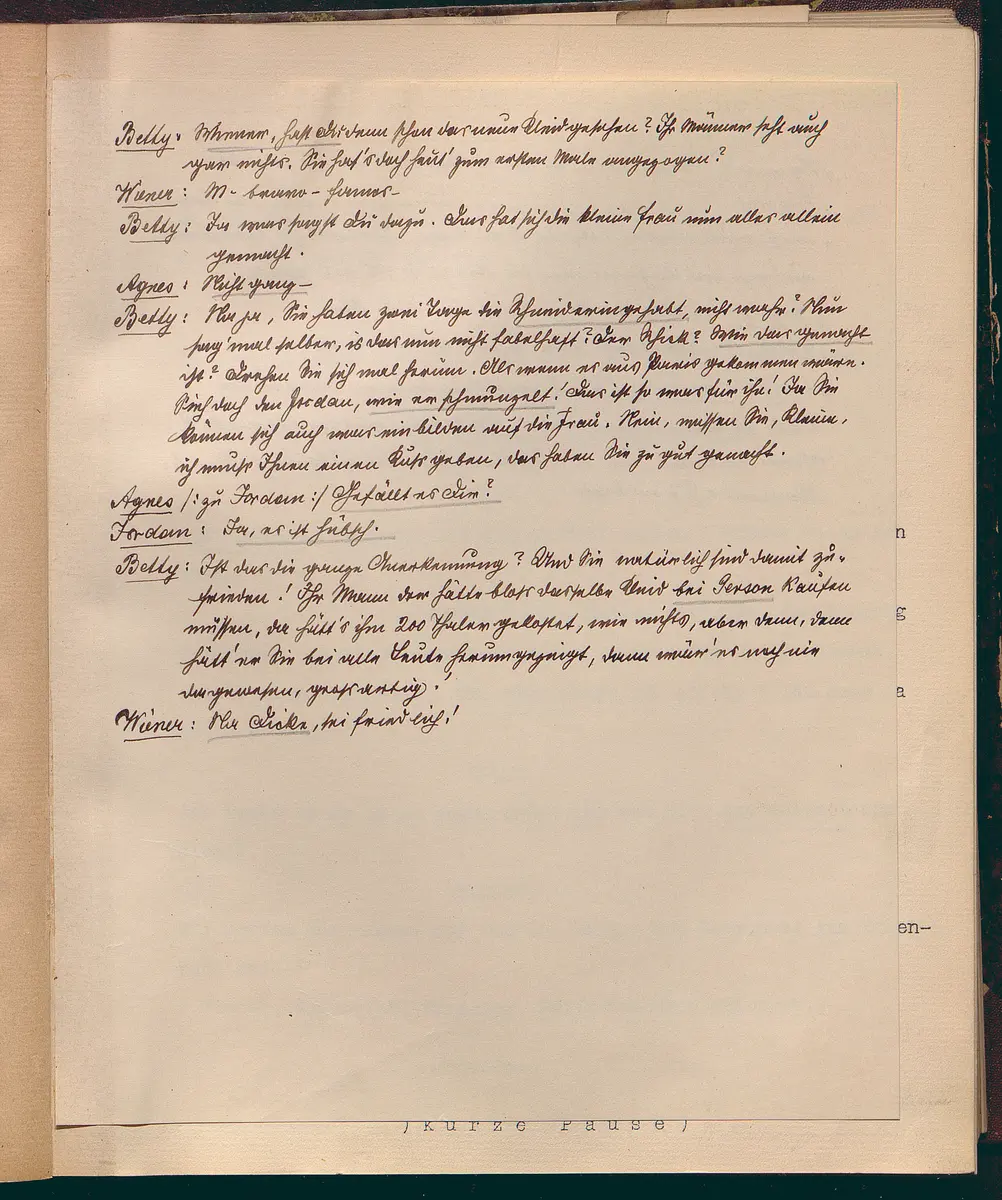 Betty: Wiener, hast Du denn schon das neue Kleid gesehen? Ihr Männer seht auch
gar nichts. Sie hat's doch heut' zum ersten Male angezogen?
Wiener: M- bravo- famos-
Betty: Ja was sagst Du dazu. Das hat sich die kleine Frau nun alles allein
gemacht.
Agnes: Nicht ganz-
Betty: Na ja, Sie haben zwei Tage die Schneiderin gehabt, nicht wahr? Nun
sag' mal selber, is das nun nicht fabelhaft? Der Schick? Wie das gemacht
ist? Drehen Sie sich mal herum. Als wenn es aus Paris gekommen wäre.
Sieh doch den Jordan, wie er schmunzelt! Das ist so was für ihn! Ja Sie
können sich auch was einbilden auf die Frau. Nein, wissen Sie, Kleine,
ich muss Ihnen einen Kuss geben, das haben Sie zu gut gemacht.
Agnes /: zu Jordan :/ Gefällt es Dir?
Jordan: Ja, es ist hübsch.
Betty: Ist das die ganze Anerkennung? Und Sie natürlich sind damit zu-
frieden! Ihr Mann der hätte bloss dasselbe Kleid bei Gerson kaufen
müssen, da hätt's ihm 200 Thaler gekostet, wie nichts, aber dann, dann
hätt' er Sie bei alle Leute herumgezeigt, dann wär' es noch nie
dagewesen, grossartig!
Wiener: Na Dicke, sei friedlich!
n
g
a
en-
(Kurze Pause)